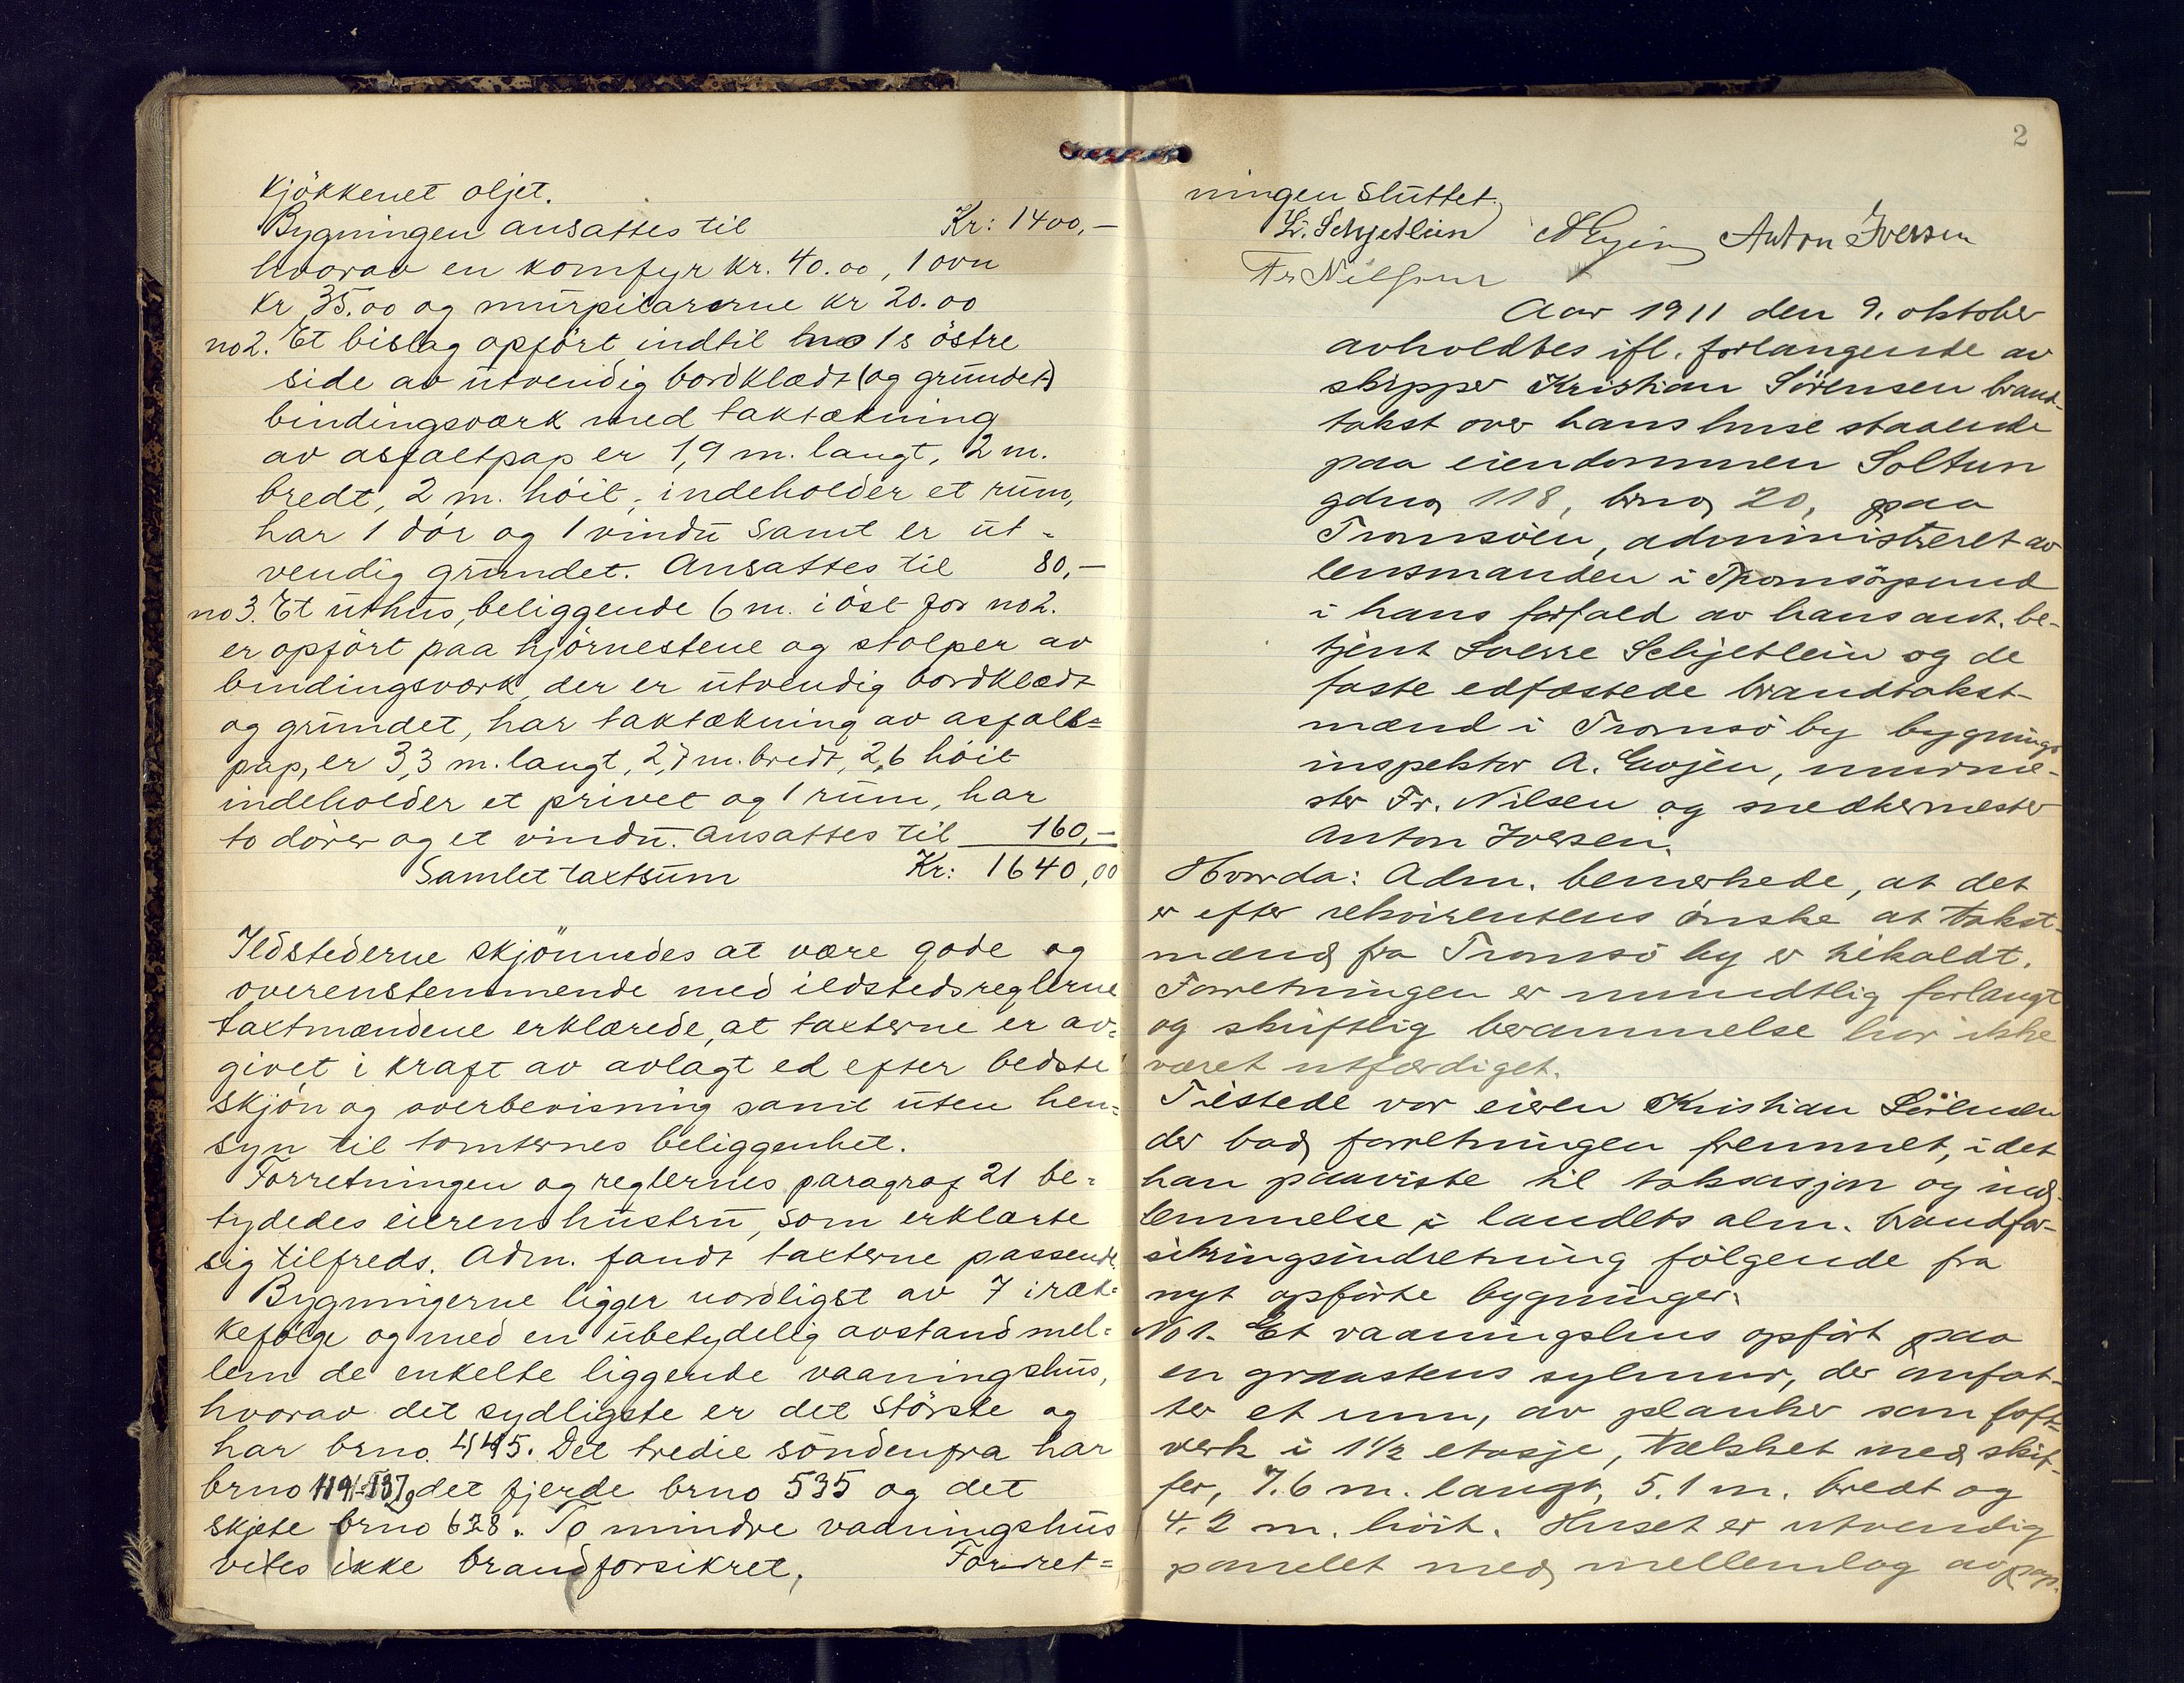 kjökkenet oljet.
Bygningen ansattes til Kr: 1400,-
hvorav en komfyr kr. 40.00, 1 ovn
kr 35.00 og murpilarerne kr 20.00
no 2. Et bislag opført indtil hus 1s östre
side av utvendig bordklædt (og grundet)
bindingsværk med taktækning
av asfaltpap er 1,9 m. langt, 2 m.
bredt, 2 m. höit, indeholder et rum,
har 1 dör og 1 vindu samt er ut-
vendig grundet. Ansattes til 80,-
no 3. Et uthus, beliggende 6 m. i öst for no 2.
er opfört paa hjörnestene og stolper av
bindingsværk, der er utvendig bordklædt
og grundet, har taktækning av asfalt=
pap, er 3,3 m. langt, 2,7 m. bredt, 2,6 höit
indeholder et privet og 1 rum, har
to dörer og et vindu. Ansattes til 160,-
Samlet taxtsum Kr: 1640,00
Ildstederne skjönnedes at være gode og
overenstemmende med ildstedsreglerne
taxtmændene erklærede, at taxterne er av=
givet i kraft av avlagt ed efter bedste
skjön og overbevisning samt uten hen=
syn til tomternes beliggenhet.
Forretningen og reglernes paragraf 21 be=
tydedes eierens hustru, som erklærte
sig tilfreds. Adm. fandt taxterne passende.
Bygningerne ligger nordligst av 7 i ræk=
kefölge og med en ubetydelig avstand mel=
lem de enkelte liggende vaaningshus,
hvorav det sydligste er det störste og
har brno. 445. Det tredie söndenfra har
brno 537, det fjerde brno 535 og det
sjette brno 628. To mindre vaaningshus
vites ikke brandforsikret, Forret=
2
ningen sluttet.
Sv. Schjetlein Anton Iversen
Fr Nilsen
Aar 1911 den 9. oktober
avholdtes ifl. forlangende av
skipper Kristian Sörensen brand-
takst over hans huse staaende
paa eiendommen Soltun
gdno, 118, brno, 20, paa
Tromsöen, administreret av
lensmanden i Tromsösund
i hans forfald av hans aut. be-
tjent Sverre Schjetlein og de
faste edfæstede brandtakst-
mænd i Tromsö by bygnings
inspektör A. Gjøen, murme-
ster Fr. Nilsen og snedkermester
Anton Iversen.
Hvorda: Adm. bemerkede, at det
er efter rekvirentens önske at takst-
mænd fra Tromsö by er tilkaldt.
Forretningen er mundtlig forlangt
og skriftlig berammelse har ikke
været utfærdiget.
Tilstede var eieren Kristian Sörensen
der bad forretningen fremmet, idet
han paaviste til taksasjon og ind-
lemmelse i landets alm. brandfor-
sikringsindretning fölgende fra
nyt opförte bygninger.
No 1. Et vaaningshus opfört paa
en graastens sylmur, der omfat-
ter et rum, av planker som loft-
verk i 1½ etasje, tækket med skif-
fer, 7.6 m. langt, 5.1 m. bredt og
4.2 m. höit. Huset er utvendig
panelet med mellemlag av pap.